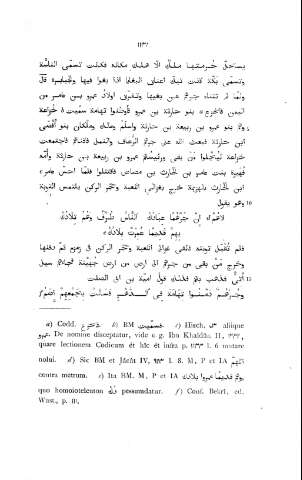 ١١٣٢
يستحلّ حُرمتها ملك الّا هلك مكانه فكانت تسمّى الناسّة
وتسمّى بَكّة كانت تبكّ اعناق البغايا اذا بغوا فيها والجبابرة قال
ولمّا لم تتناه جرهم عن بغيها وتفرّق اولاد عمرو بن عامر من
اليمن فانخزع بنو حارثة بن عمرو فأوطنوا تهامة سمّيت خزاعة
بنو عمرو بن ربيعة بن حارثة واسلم ومالك وملكان بنو أفصى
ابن حارثة فبعث الله على جرهم الرعاف والنمل فأفناهم فاجتمعت
خزاعة ليُجلوا من بقى ورئيسهم عمرو بن ربيعة بن حارثة وأمّه
فهيرة بنت عامر بن الحارث بن مضاض فاقتتلوا فلمّا احسّ عامر
ابن الحارث بالهزيمة خرج بغزالى الكعبة وحجر الركن يلتمس التوبة
وهو يقول
لاهُمَّ إنّ جُرْهُمًا عبادُكَ النّاسُ طُرْفٌ وهُمُ تِلادُكَ
بِهِمْ قَديمًا عَمِرَتْ بِلادُكَ
فلم تُقبل توبته فألقى غزالى الكعبة وحجر الركن فى زمزم ثم دفنها
وخرج من بقى من جرهم الى ارض من ارض جُهينة فجاءهم سيل
أتىّ فذهب بهم فذلك قول اميّة بن ابى الصلت
وجرهم دَمَّنوا تهامة فى الدهر فسالت بجمعهم إضم
a) Codd. فانخزع. b) BM فسمّيت. c) Hisch. من aliique
عمرو. De nomine disceptatur, vide e. g. Ibn Khaldûn II, ٣٣٢,
quare lectionem Codicum et hîc et infra p. ١١٣٣ l. 6 mutare
nolui. d) Sic BM et Jâcût IV, ٦٢٣ l. 8. M, P et IA اللّهمّ
contra metrum. e) Ita BM. M, P et IA بهم قديما عمروا بلادك
quo homoioteleuton ولادك pessumdatur. f) Conf. Bekrî, ed.
Wust., p. ١١٠.